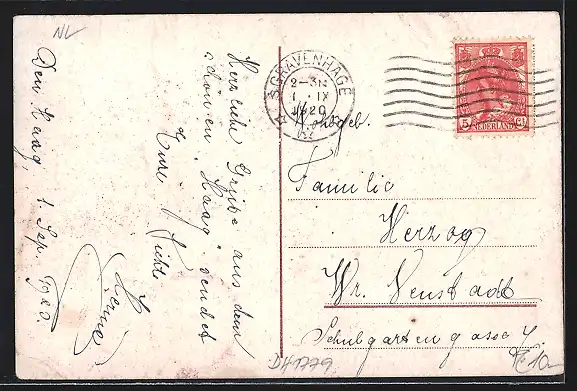 NL
Den Haag, 1 Sep. 1920.
Herzliche Grüße aus dem
schönen Haag sendet
Eure
'S GRAVENHAGE
2-3N
1 IX
1920
5 NEDERLAND Ct
Wohlgeb.
Familie
Herzog
Wr. Neustadt
Schulgartengasse 4
DH1779